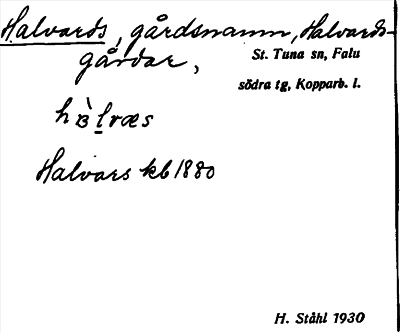 Halvards, gårdsnamn, Halvards-
gårdar,
St. Tuna sn, Falu
södra tg, Kopparb. l.
Halvars kb 1880
H. Ståhl 1930